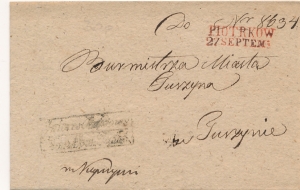 Do Nr 8634
PIOTRKÓW
27 SEPTEM:
Burmistrza Miasta
Tuszyna
w Tuszynie